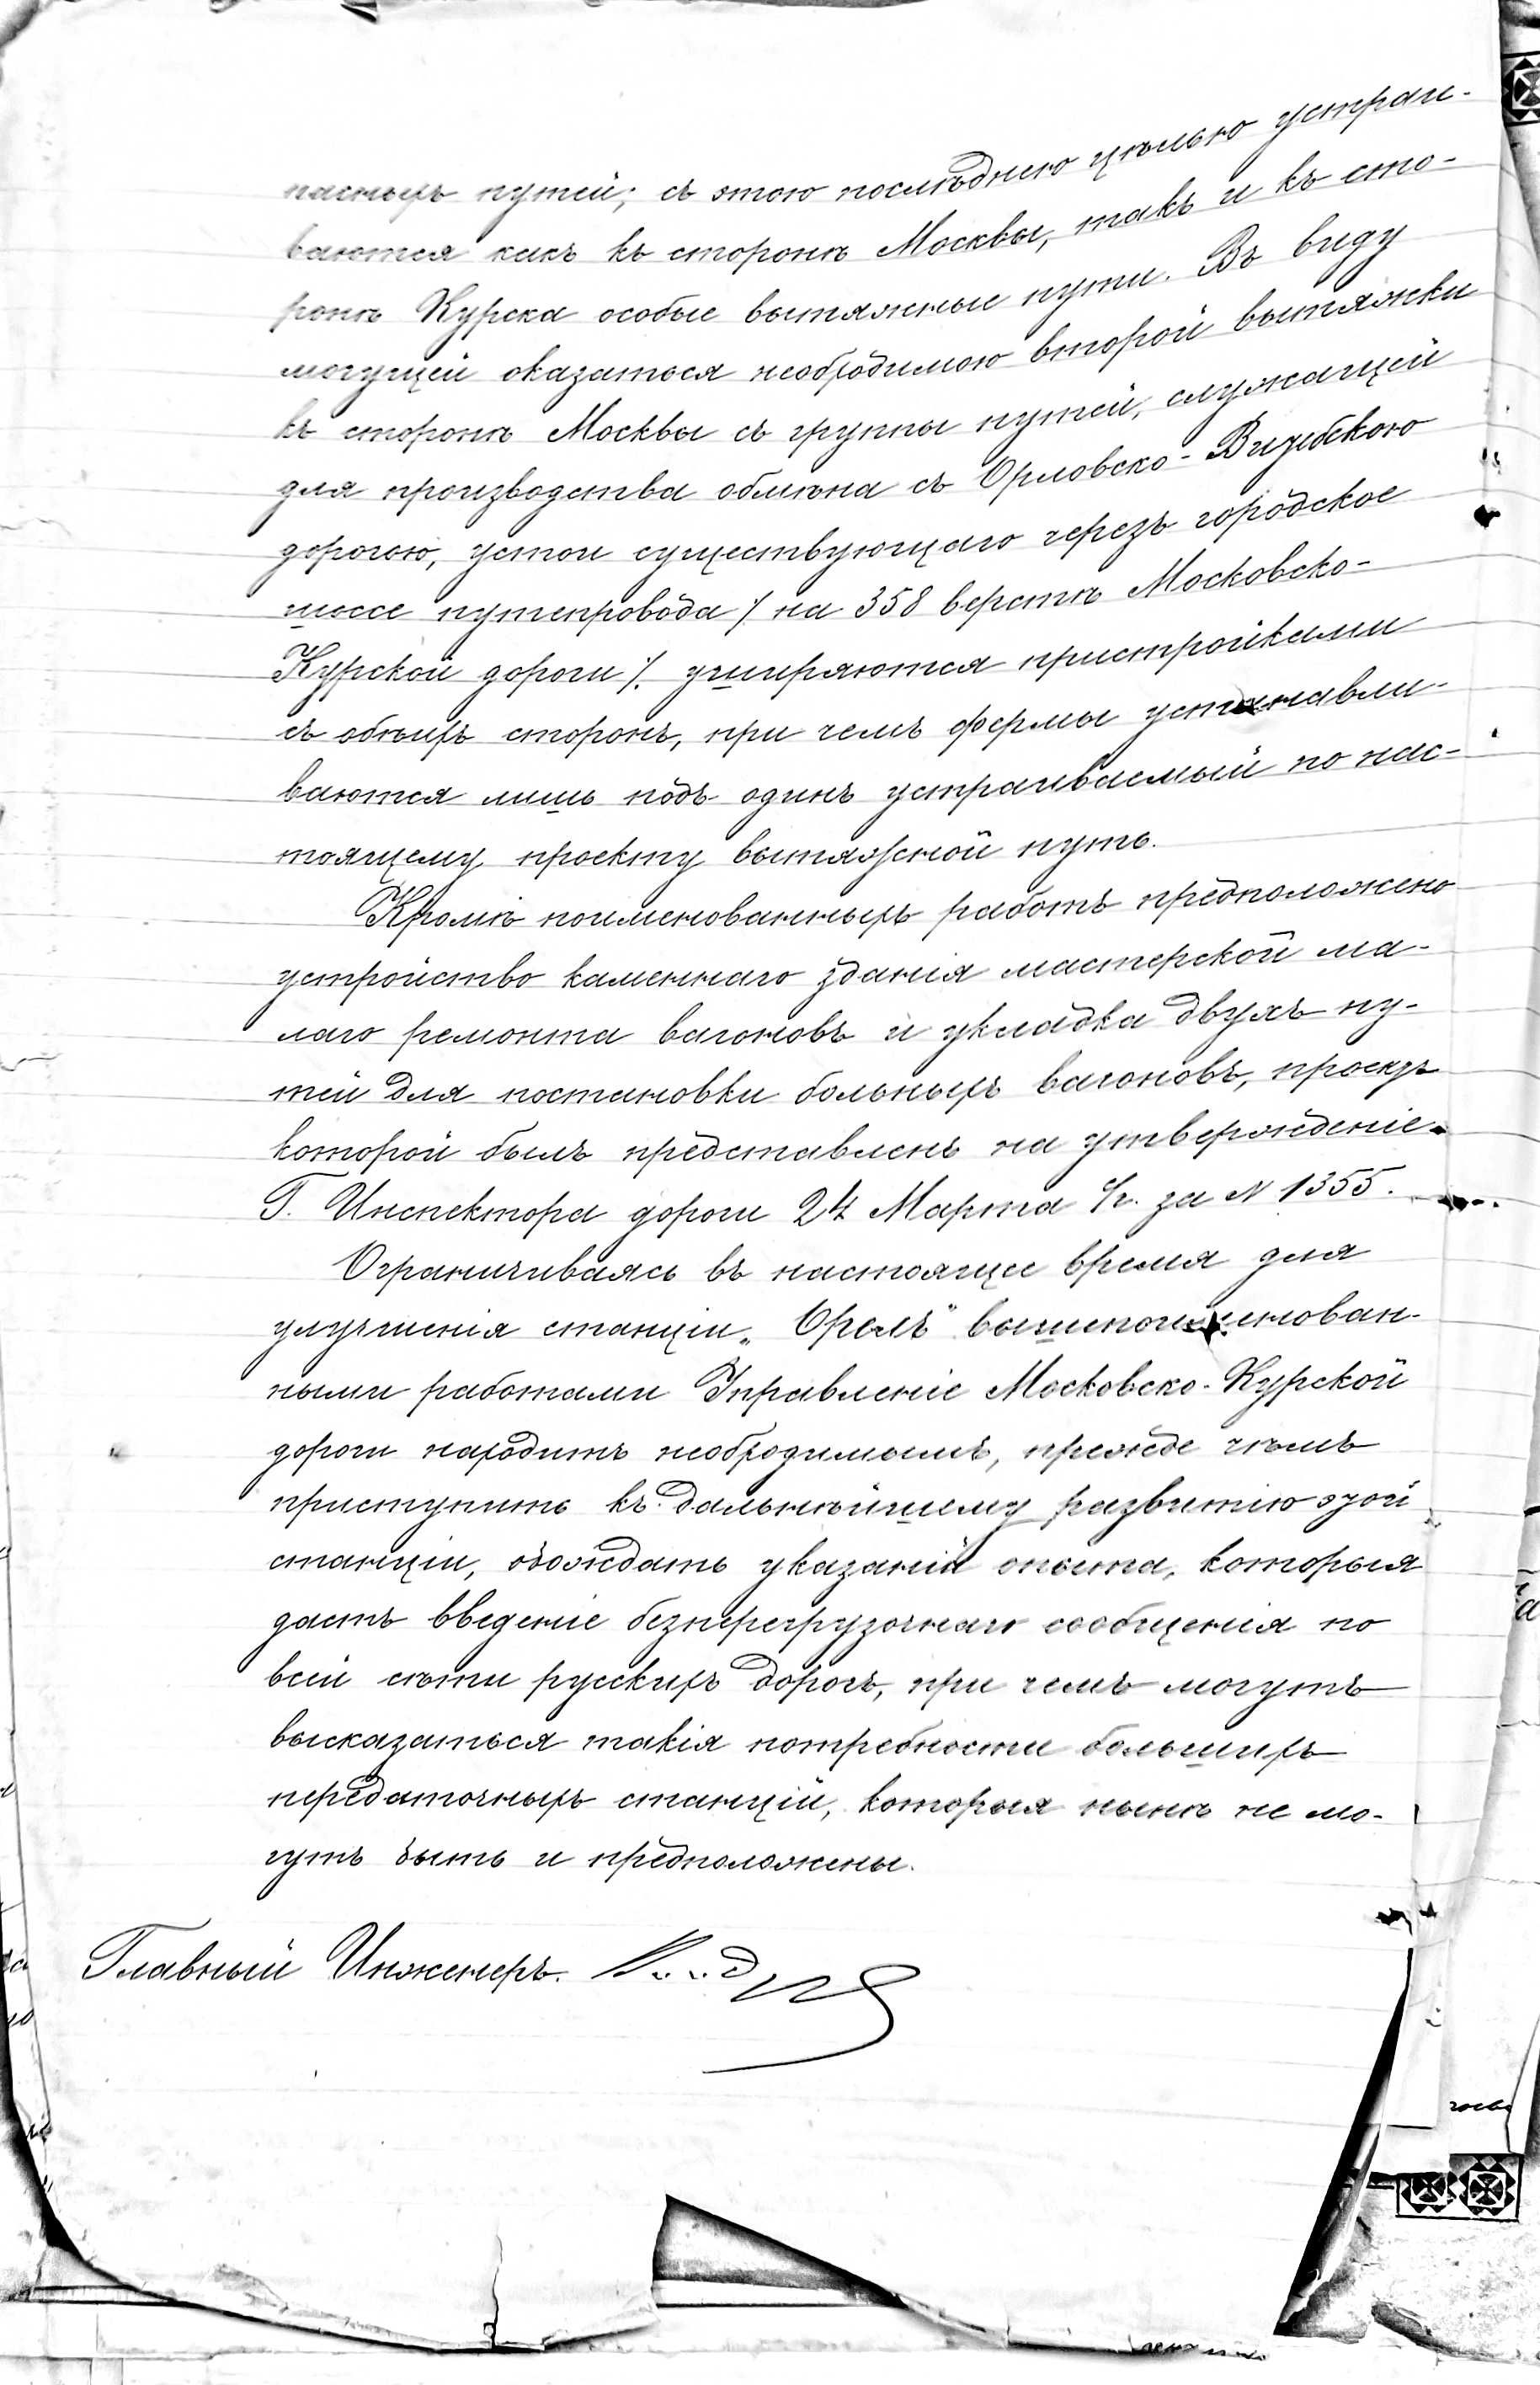 пасныхъ путей; съ этою послѣднею цѣлью устраи-
ваются какъ къ сторонѣ Москвы, такъ и къ сто-
ронѣ Курска особые вытяжные пути. Въ виду
могущей оказаться необходимою второй вытяжки
къ сторонѣ Москвы съ группы путей, служащей
для производства обмѣна съ Орловско-Витебскою
дорогою, устои существующаго черезъ городское
шоссе путепровода /. на 358 верстѣ Московско-
Курской дороги /. уширяются пристройками
съ обѣихъ сторонъ, при чемъ фермы устанавли-
ваются лишь подъ одинъ устраиваемый по нас-
тоящему проекту вытяжной путь.
Кромѣ поименованныхъ работъ предположено
устройство каменнаго зданія мастерской ма-
лаго ремонта вагоновъ и укладка двухъ пу-
тей для постановки больныхъ вагоновъ, проектъ
которой былъ представленъ на утвержденіе
Г. Инспектора дороги 24 Марта с/г. за № 1355.
Ограничиваясь въ настоящее время для
улучшенія станціи „Орелъ" вышепоименован-
ными работами Управленіе Московско-Курской
дороги находитъ необходимымъ, прежде чѣмъ
приступить къ дальнѣйшему развитію этой
станціи, обождать указаній опыта, которыя
дастъ введеніе безперегрузочнаго сообщенія по
всей сѣти русскихъ дорогъ, при чемъ могутъ
высказаться такія потребности большихъ
передаточныхъ станцій, которыя нынѣ не мо-
гутъ быть и предположены.
Главный Инженеръ.